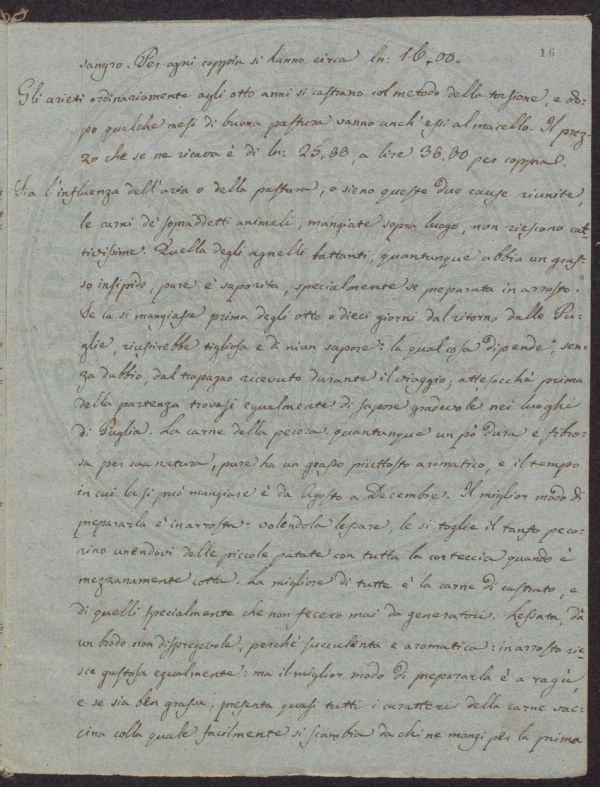 16
sangro. Per ogni coppia si hanno circa ln: 16,00.
Gli arieti ordinariamente agli otto anni si castrano col metodo della torsione, e do-
po qualche mesi di buona pastura vanno anch'essi al macello. Il prez-
zo che se ne ricava è di ln: 25,88, a lire 38,00 per coppia.
Sia l'influenza dell'aria o della pastura, o sieno queste due cause riunite,
le carni de' sopraddetti animali, mangiate sopra luogo, non riescono cat-
tivissime. Quella degli agnelli lattanti, quantunque abbia un gras-
so insipido, pure è saporita, specialmente se preparata in arrosto.
Se la si mangiasse prima degli otto o dieci giorni dal ritorno dalle Pu-
glie, riuscirebbe tigliosa e di niun sapore: la qual cosa dipende, sen-
za dubbio, dal trapazo ricevuto durante il viaggio; attesocchè prima
della partenza trovasi egualmente di sapore gradevole nei luoghi
di Puglia. La carne della pecora quantunque un pò dura e fibro-
sa per sua natura, pure ha un grasso piuttosto aromatico, e il tempo
in cui la si può mangiare è da Agosto a Decembre. Il miglior modo di
prepararla è in arrosto: volendola lessare, le si toglie il tanfo peco-
rino unendovi delle piccole patate con tutta la corteccia quando è
mezzanamente cotta. La migliore di tutte è la carne di castrato, e
di quelli specialmente che non fecero mai da generatori. Lessata, dà
un brodo non dispregevole, perchè succulenta e aromatica: in arrosto rie-
sce gustosa egualmente: ma il miglior modo di prepararla è a ragù,
e se sia ben grassa, presenta quasi tutti i caratteri della carne vac-
cina colla quale facilmente si scambia da chi ne mangi per la prima